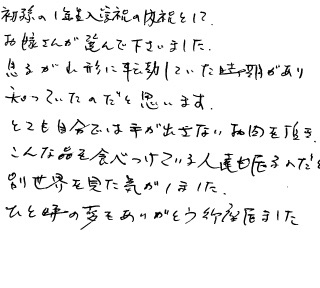 初孫の1年生入学祝の内祝として、
お嫁さんが選んで下さいました。
思るがれ形に転勤していた時期があり
知っていたのだと思います。
とても自分では手が出せないお肉を頂き
こんな品を食べつけている人達も居るんだと
別世界を見た気がしました。
ひと時の夢をありがとう御座居ました